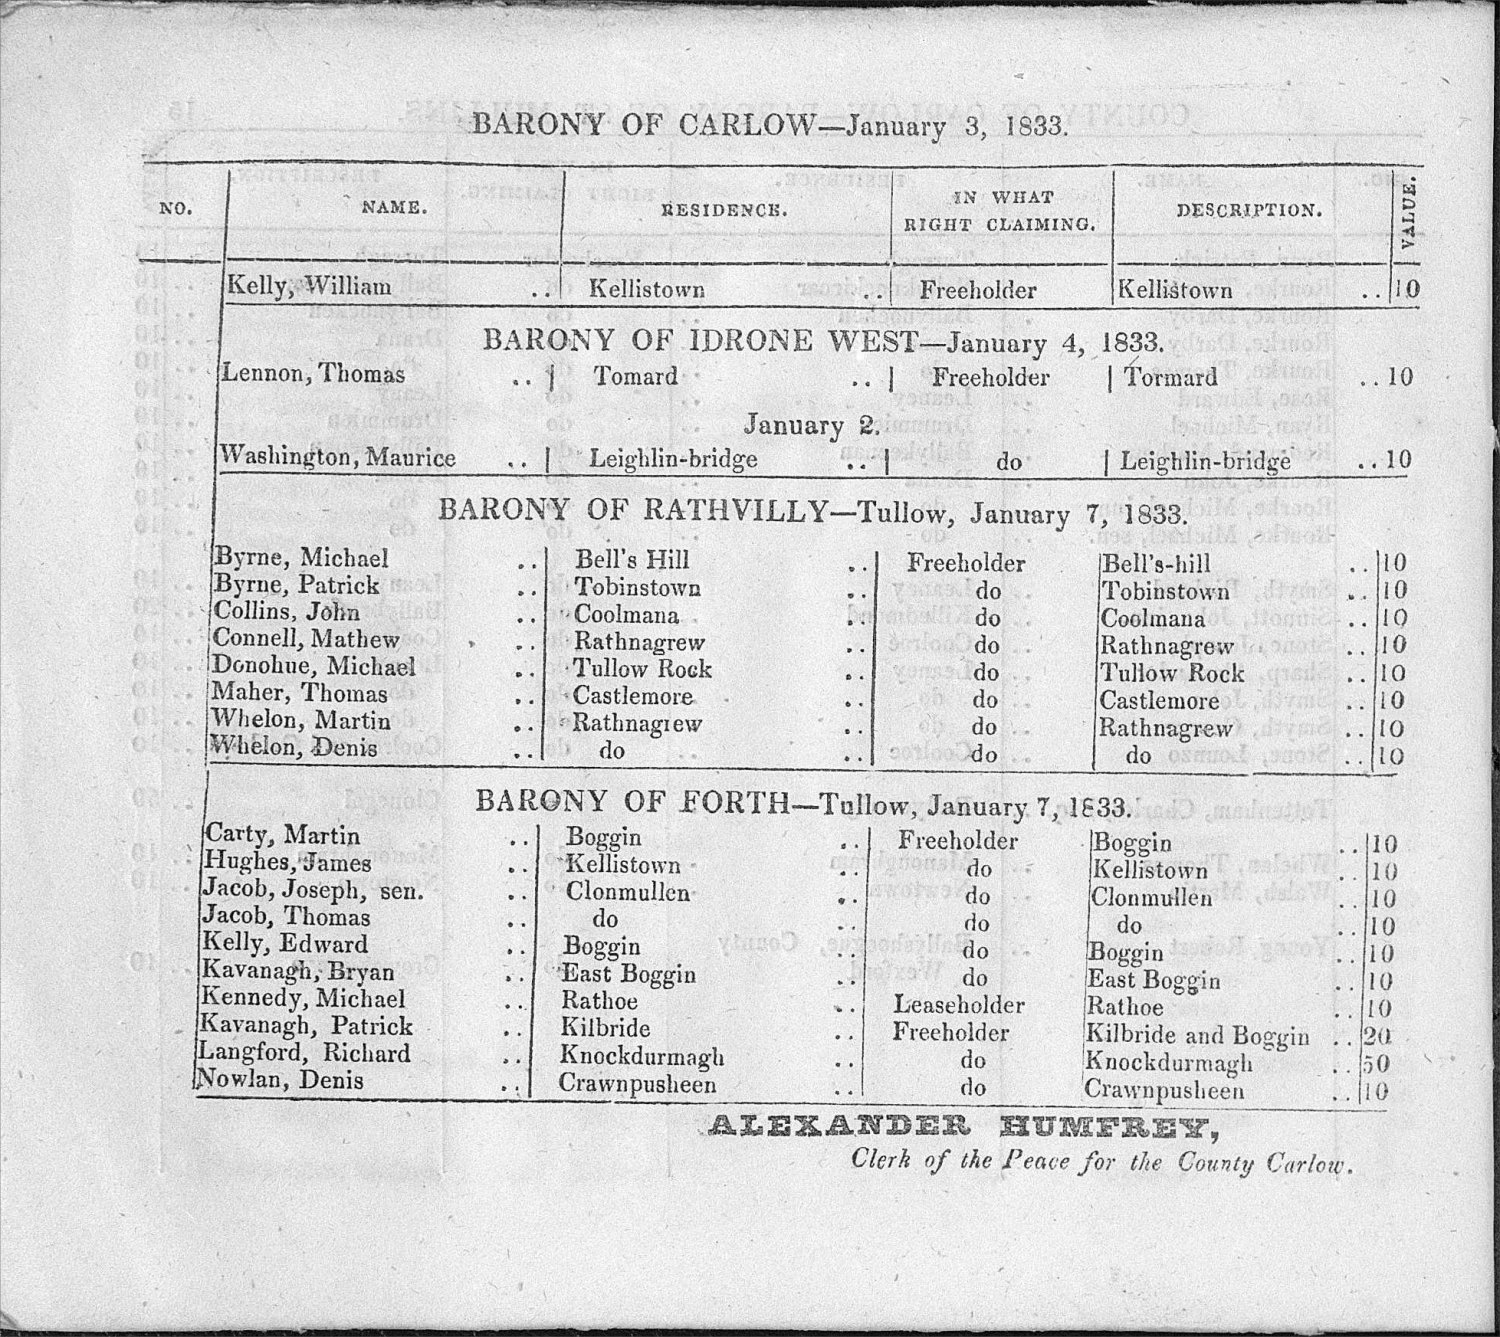 BARONY OF CARLOW—January 3, 1833.
NO. NAME. RESIDENCE. IN WHAT RIGHT CLAIMING. DESCRIPTION. VALUE.
Kelly, William .. Kellistown .. Freeholder Kellistown .. 10
BARONY OF IDRONE WEST—January 4, 1833.
Lennon, Thomas .. Tomard .. Freeholder Tormard .. 10
January 2.
Washington, Maurice .. Leighlin-bridge .. do Leighlin-bridge .. 10
BARONY OF RATHVILLY—Tullow, January 7, 1833.
Byrne, Michael .. Bell's Hill .. Freeholder Bell's-hill .. 10
Byrne, Patrick .. Tobinstown .. do Tobinstown .. 10
Collins, John .. Coolmana .. do Coolmana .. 10
Connell, Mathew .. Rathnagrew .. do Rathnagrew .. 10
Donohue, Michael .. Tullow Rock .. do Tullow Rock .. 10
Maher, Thomas .. Castlemore .. do Castlemore .. 10
Whelon, Martin .. Rathnagrew .. do Rathnagrew .. 10
Whelon, Denis .. do .. do do .. 10
BARONY OF FORTH—Tullow, January 7, 1833.
Carty, Martin .. Boggin .. Freeholder Boggin .. 10
Hughes, James .. Kellistown .. do Kellistown .. 10
Jacob, Joseph, sen. .. Clonmullen .. do Clonmullen .. 10
Jacob, Thomas .. do .. do do .. 10
Kelly, Edward .. Boggin .. do Boggin .. 10
Kavanagh, Bryan .. East Boggin .. do East Boggin .. 10
Kennedy, Michael .. Rathoe .. Leaseholder Rathoe .. 10
Kavanagh, Patrick .. Kilbride .. Freeholder Kilbride and Boggin .. 20
Langford, Richard .. Knockdurmagh .. do Knockdurmagh .. 50
Nowlan, Denis .. Crawnpusheen .. do Crawnpusheen .. 10
ALEXANDER HUMFREY,
Clerk of the Peace for the County Carlow.